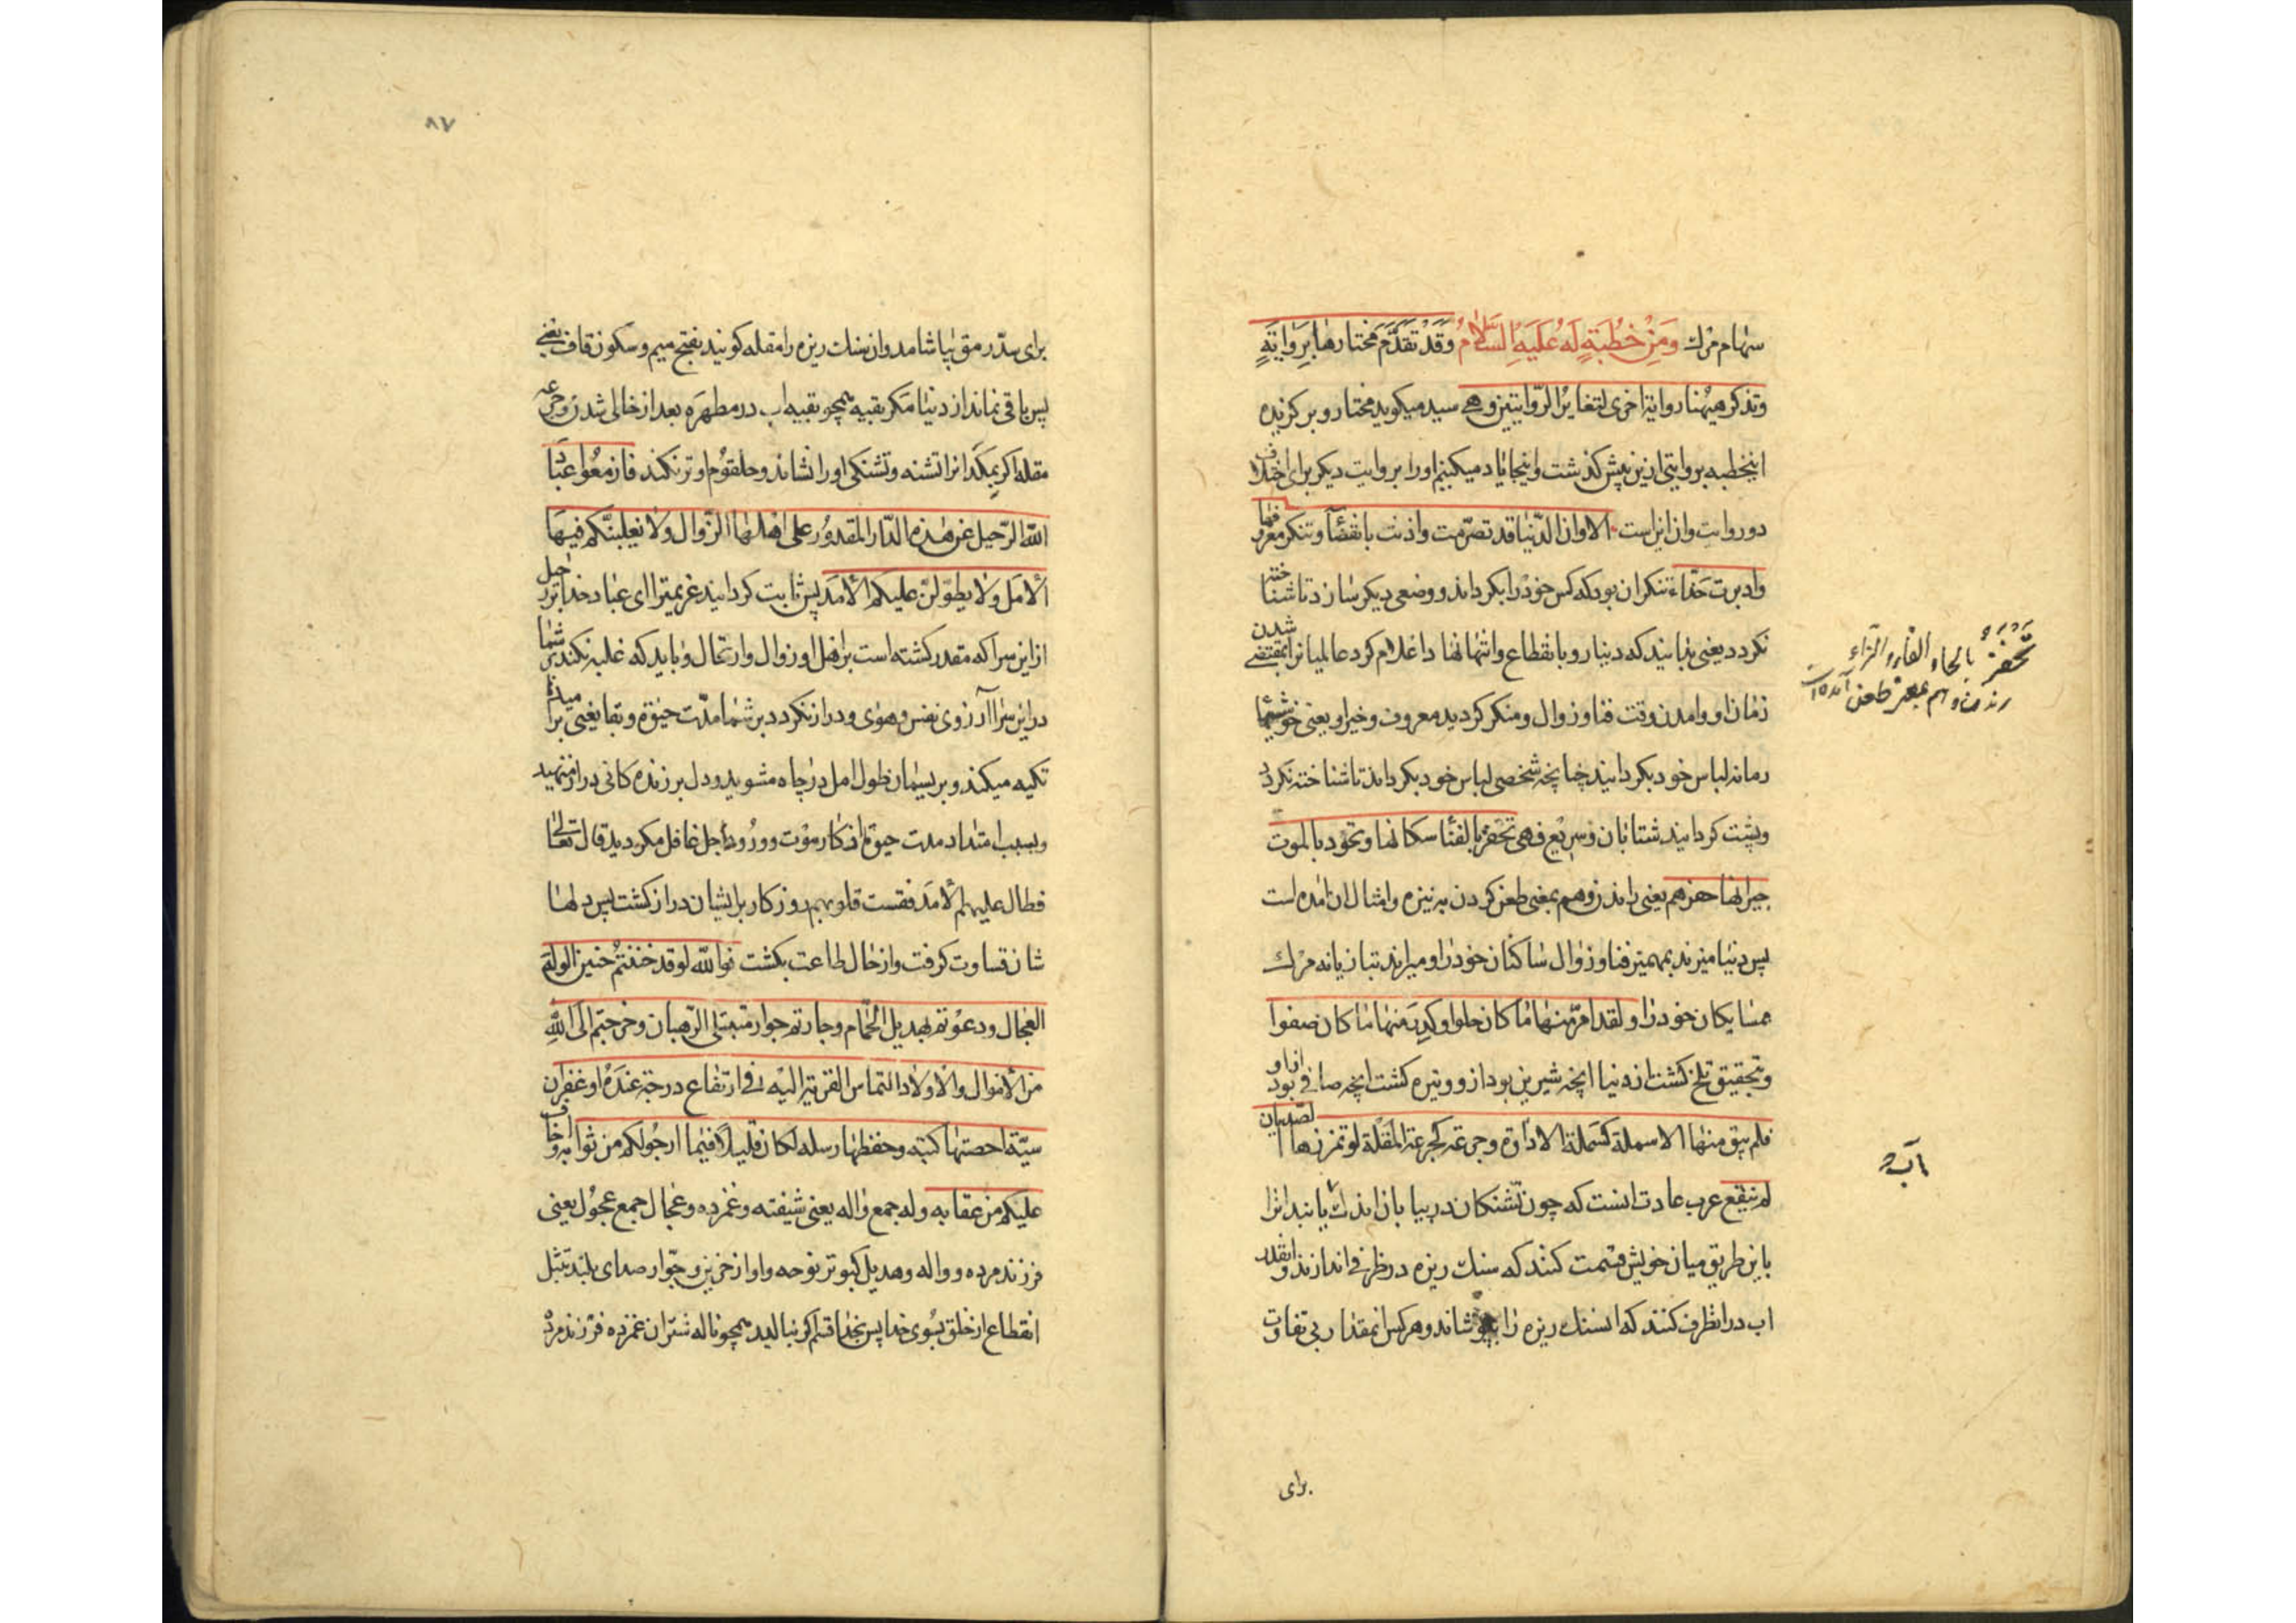 سهام مرك وَمِنْ خُطْبَةٍ لَهُ عَلَيْهِ السَّلامُ وَقَدْ تَقَدَّمَ مختارها بِرَوايَةٍ
وتذكر هيهنا رواية اخرى لتغاير الروايتين وهى سيد ميكويد مختار وبركزيده
اينخطبه بروايتى ازين پيش كذشت واينجا ياد ميكنيم اورا بروايت ديكر براى اختلاف
دو روايت وان اينست الا وان الدنيا قد تصرمت واذنت بانقضآء وتنكر معروفها
وادبرت حذآء تنكر ان بود كه كس خود را بكرداند ووضعى ديكر سازد تا شناخته
نكردد يعنى بدانيد كه دنيا رو بانقطاع وانتها نهاد اعلام كرد عالميانرا بمقتضى شدن
زمان او وامدن وقت فنا وزوال ومنكر كرديد معروف وخير او يعنى خوشيها
زمانه لباس خود بكردانيد چنانچه شخصى لباس خود بكرداند تا شناخته نكردد
وپشت كردانيد شتابان وسريع فهى تحفز بالفنا سكانها وتحدو بالموت
جيرانها حفز هم يعنى راندن وهم بمعنى طعن كردن به نيزه وامثال ان امده است
پس دنيا ميزند بمهميز فنا وزوال ساكنان خود را وميراند بتازيانه مرك
همسايكان خود را ولقد امر منها ما كان حلوا وكدر منها ما كان صفوا
وبتحقيق تلخ كشت از دنيا انچه شيرين بود از او وتيره كشت انچه صافى بود از او
فلم يبق منها الا سملة كسملة الاداوة وجرعة كجرعة المقلة لو تمززها الصديان
لم ينقع عرب عادت انست كه چون تشنكان در بيابان اندك يابند انرا
باين طريق ميان خويش قسمت كنند كه سنك ريزه در ظرفى اندازند وانقدر
اب در انظرف كنند كه انسنك ريزه را بپوشاند وهر كس انمقدار بى تفاوت
براى
تحفز بالحاء والفاء والزاء
راندن وهم بمعنى طعن آمده است
آب
٨٧
براى سد رمق بياشامد وان سنك ريزه را مقله كويند بفتح ميم وسكون قاف يعنى
پس باقى نماند از دنيا مكر بقيه همچو بقيه اب در مطهره بعد از خالى شدن وجرعه
مقله اكر بمكد انرا تشنه وتشنكى او را ننشاند وحلقوم او تر نكند فازمعوا عباد
الله الرحيل عن هذه الدار المقدور على اهلها الزوال ولا يغلبنكم فيها
الامل ولا يطولن عليكم الامد پس ثابت كردانيد عزيمترا اى عباد خدا بر رحيل
از اين سرا كه مقدر كشته است بر اهل او زوال وارتحال وبايد كه غلبه نكند بر شما
در اين سرا آرزوى نفس وهواى ودراز نكردد بر شما مدت حيوة وبقا يعنى
تكيه ميكند وبريسمان طول امل در چاه مشويد ودل بر زنده كانى دراز منهيد
وبسبب امتداد مدت حيوة از كار موت وورود اجل غافل مكرديد قال تعالى
فطال عليهم الامد فقست قلوبهم روزكار بر ايشان دراز كشت پس دلها
شان قساوت كرفت واز حال طاعت بكشت فوالله لو قد حننتم حنين الوله
العجال ودعوتم بهديل الحمام وجارتم جوار متبتلى الرهبان وخرجتم الى الله
من الاموال والاولاد التماس القربة اليه فى ارتفاع درجة عنده او غفران
سيئة احصتها كتبه وحفظها رسله لكان قليلا فيما ارجو لكم من ثوابه واخاف
عليكم من عقابه وله جمع واله يعنى شيفته وغمزده وعجال جمع عجول يعنى
فرزند مرده وواله وهديل كبوتر نوحه واواز حزين وجوار صداى بلند تبتل
انقطاع از خلق بسوى خدا پس بخدا قسم اكر بناليد همچو ناله شتران غمزده فرزند مرده